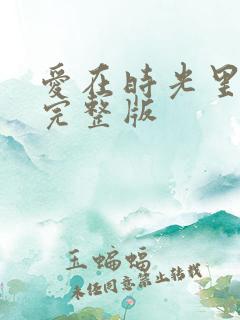 爱在时光里
完整版
玉蝙蝠
未经同意禁止转载